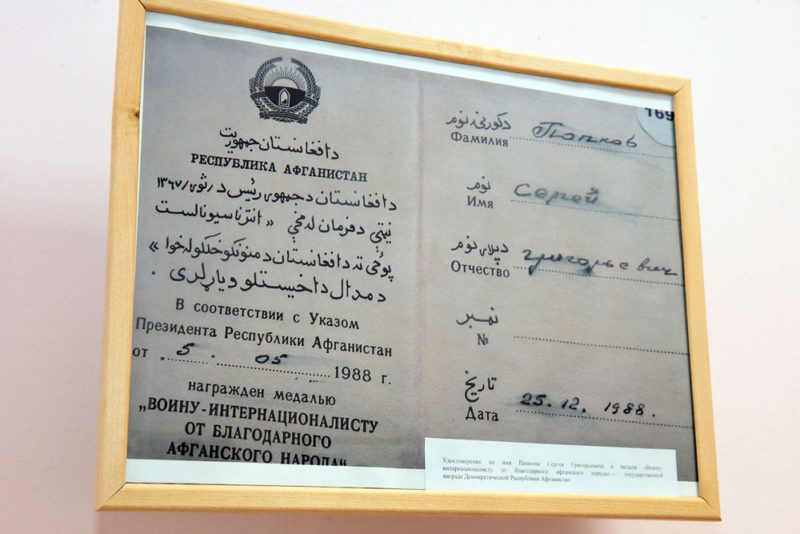 د افغانستان جمهوریت
РЕСПУБЛИКА АФГАНИСТАН
د افغانستان د جمهوری رئیس د ثوری/۱۳۶۷
نیټې د فرمان له مخې « انترناسیونالست
پوځی ته د افغانستان د منونکو خلکو له خوا »
د مدال د اخیستلو ویاړ لری .
В соответствии с Указом
Президента Республики Афганистан
от „ 5 “ 05 1988 г.
награжден медалью
„ВОИНУ-ИНТЕРНАЦИОНАЛИСТУ
ОТ БЛАГОДАРНОГО
АФГАНСКОГО НАРОДА“
169
د کورنۍ نوم
Фамилия Попков
نوم
Имя Сергей
د پلار نوم
Отчество Григорьевич
نمبر
№
تاریخ
Дата 25.12.1988.
Удостоверение на имя Попкова Сергея Григорьевича к медали «Воину-
интернационалисту от благодарного афганского народа» — государственной
награде Демократической Республики Афганистан.